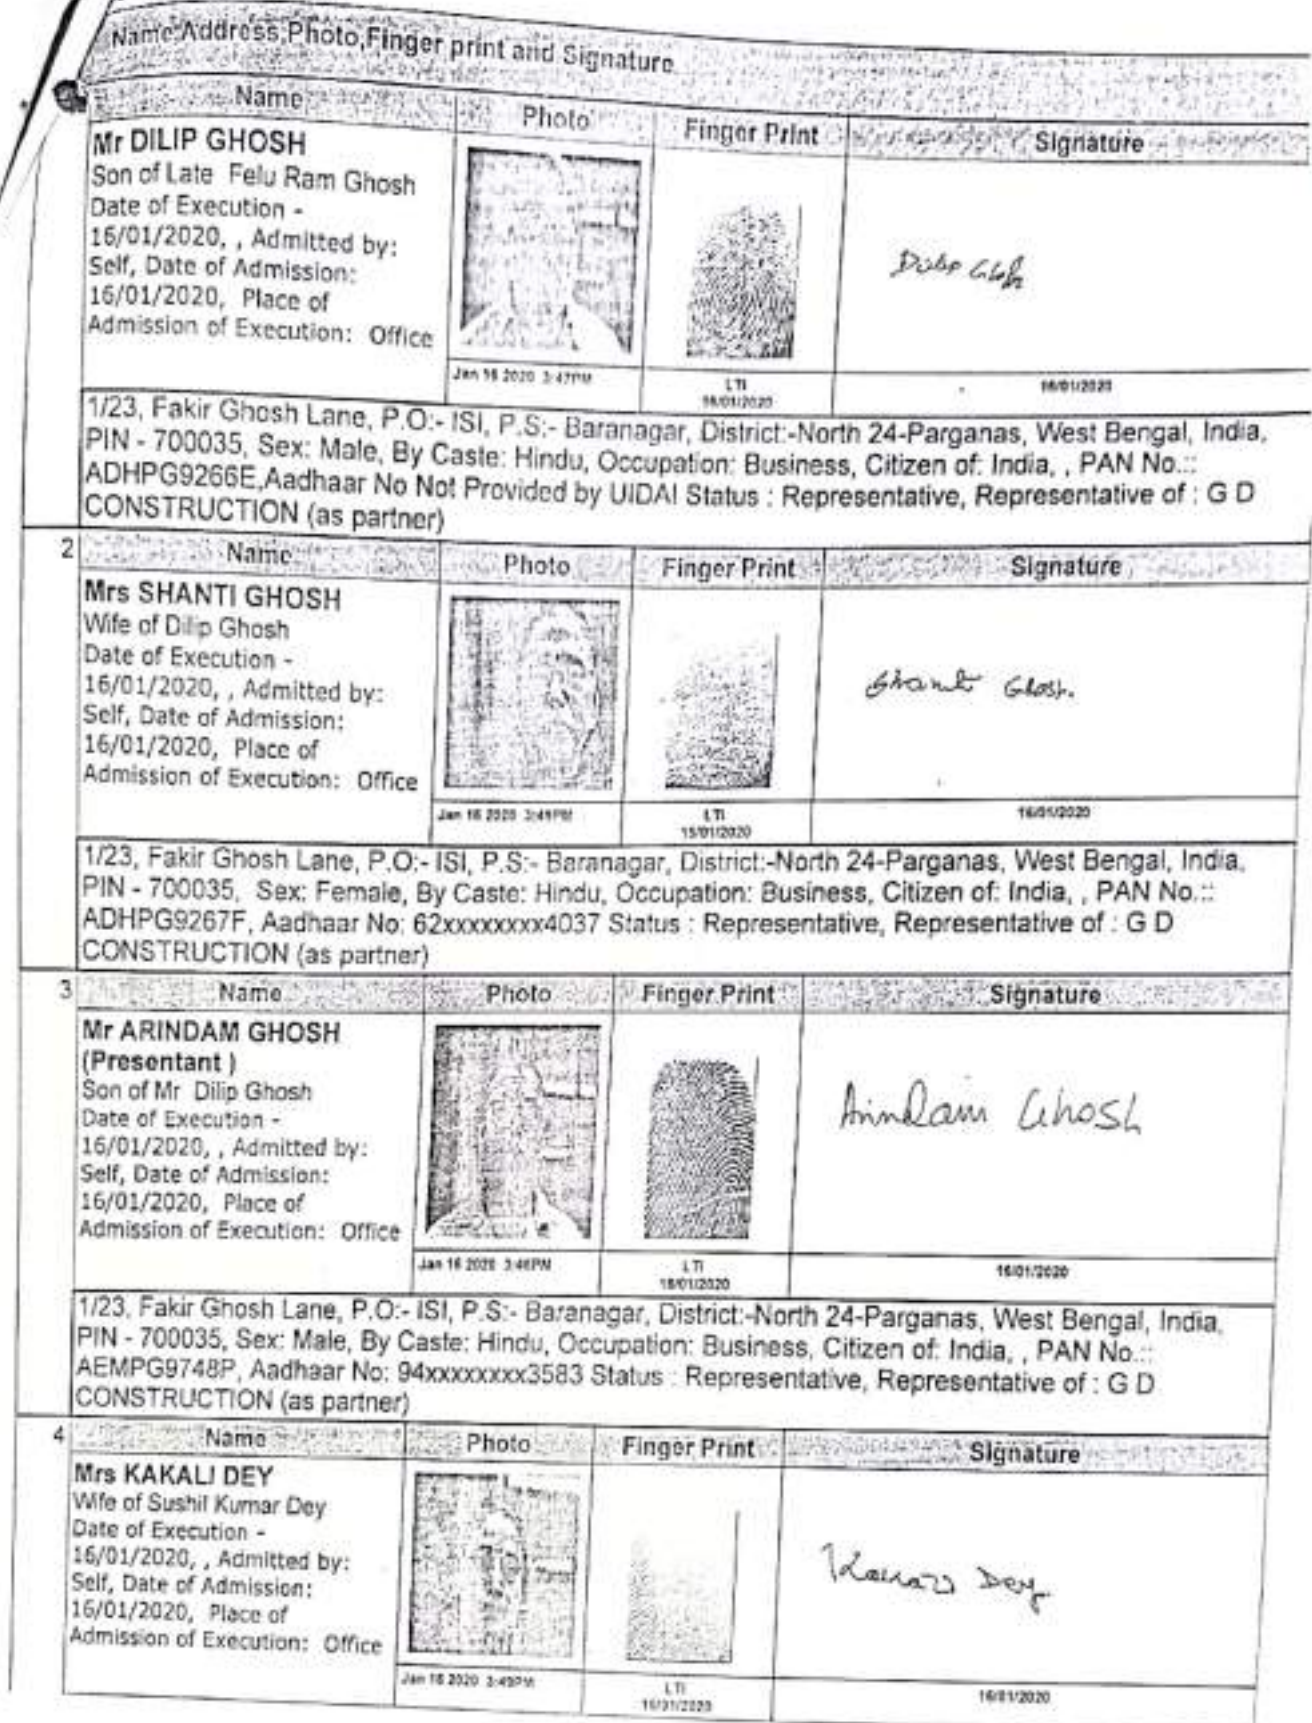 Name,Address,Photo,Finger print and Signature
Name Photo Finger Print Signature
Mr DILIP GHOSH
Son of Late Felu Ram Ghosh
Date of Execution -
16/01/2020, , Admitted by:
Self, Date of Admission:
16/01/2020, Place of
Admission of Execution: Office
Dilip Ghosh
Jan 16 2020 3:47PM LTI 16/01/2020
16/01/2020
1/23, Fakir Ghosh Lane, P.O:- ISI, P.S:- Baranagar, District:-North 24-Parganas, West Bengal, India,
PIN - 700035, Sex: Male, By Caste: Hindu, Occupation: Business, Citizen of: India, , PAN No.::
ADHPG9266E,Aadhaar No Not Provided by UIDAI Status : Representative, Representative of : G D
CONSTRUCTION (as partner)
2 Name Photo Finger Print Signature
Mrs SHANTI GHOSH
Wife of Dilip Ghosh
Date of Execution -
16/01/2020, , Admitted by:
Self, Date of Admission:
16/01/2020, Place of
Admission of Execution: Office
Shanti Ghosh.
Jan 16 2020 LTI 16/01/2020
1/23, Fakir Ghosh Lane, P.O:- ISI, P.S:- Baranagar, District:-North 24-Parganas, West Bengal, India,
PIN - 700035, Sex: Female, By Caste: Hindu, Occupation: Business, Citizen of: India, , PAN No.::
ADHPG9267F, Aadhaar No: 62xxxxxxxx4037 Status : Representative, Representative of : G D
CONSTRUCTION (as partner)
3 Name Photo Finger Print Signature
Mr ARINDAM GHOSH
(Presentant )
Son of Mr Dilip Ghosh
Date of Execution -
16/01/2020, , Admitted by:
Self, Date of Admission:
16/01/2020, Place of
Admission of Execution: Office
Arindam Ghosh
Jan 16 2020 3:46PM LTI 16/01/2020
16/01/2020
1/23, Fakir Ghosh Lane, P.O:- ISI, P.S:- Baranagar, District:-North 24-Parganas, West Bengal, India,
PIN - 700035, Sex: Male, By Caste: Hindu, Occupation: Business, Citizen of: India, , PAN No.::
AEMPG9748P, Aadhaar No: 94xxxxxxxx3583 Status : Representative, Representative of : G D
CONSTRUCTION (as partner)
4 Name Photo Finger Print Signature
Mrs KAKALI DEY
Wife of Sushil Kumar Dey
Date of Execution -
16/01/2020, , Admitted by:
Self, Date of Admission:
16/01/2020, Place of
Admission of Execution: Office
Kakali Dey
Jan 16 2020 LTI 16/01/2020